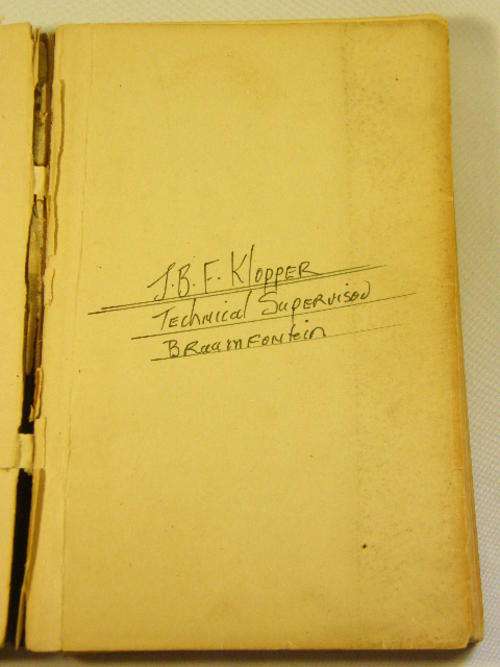 J.B.F. Klopper
Technical Supervisor
Braamfontein